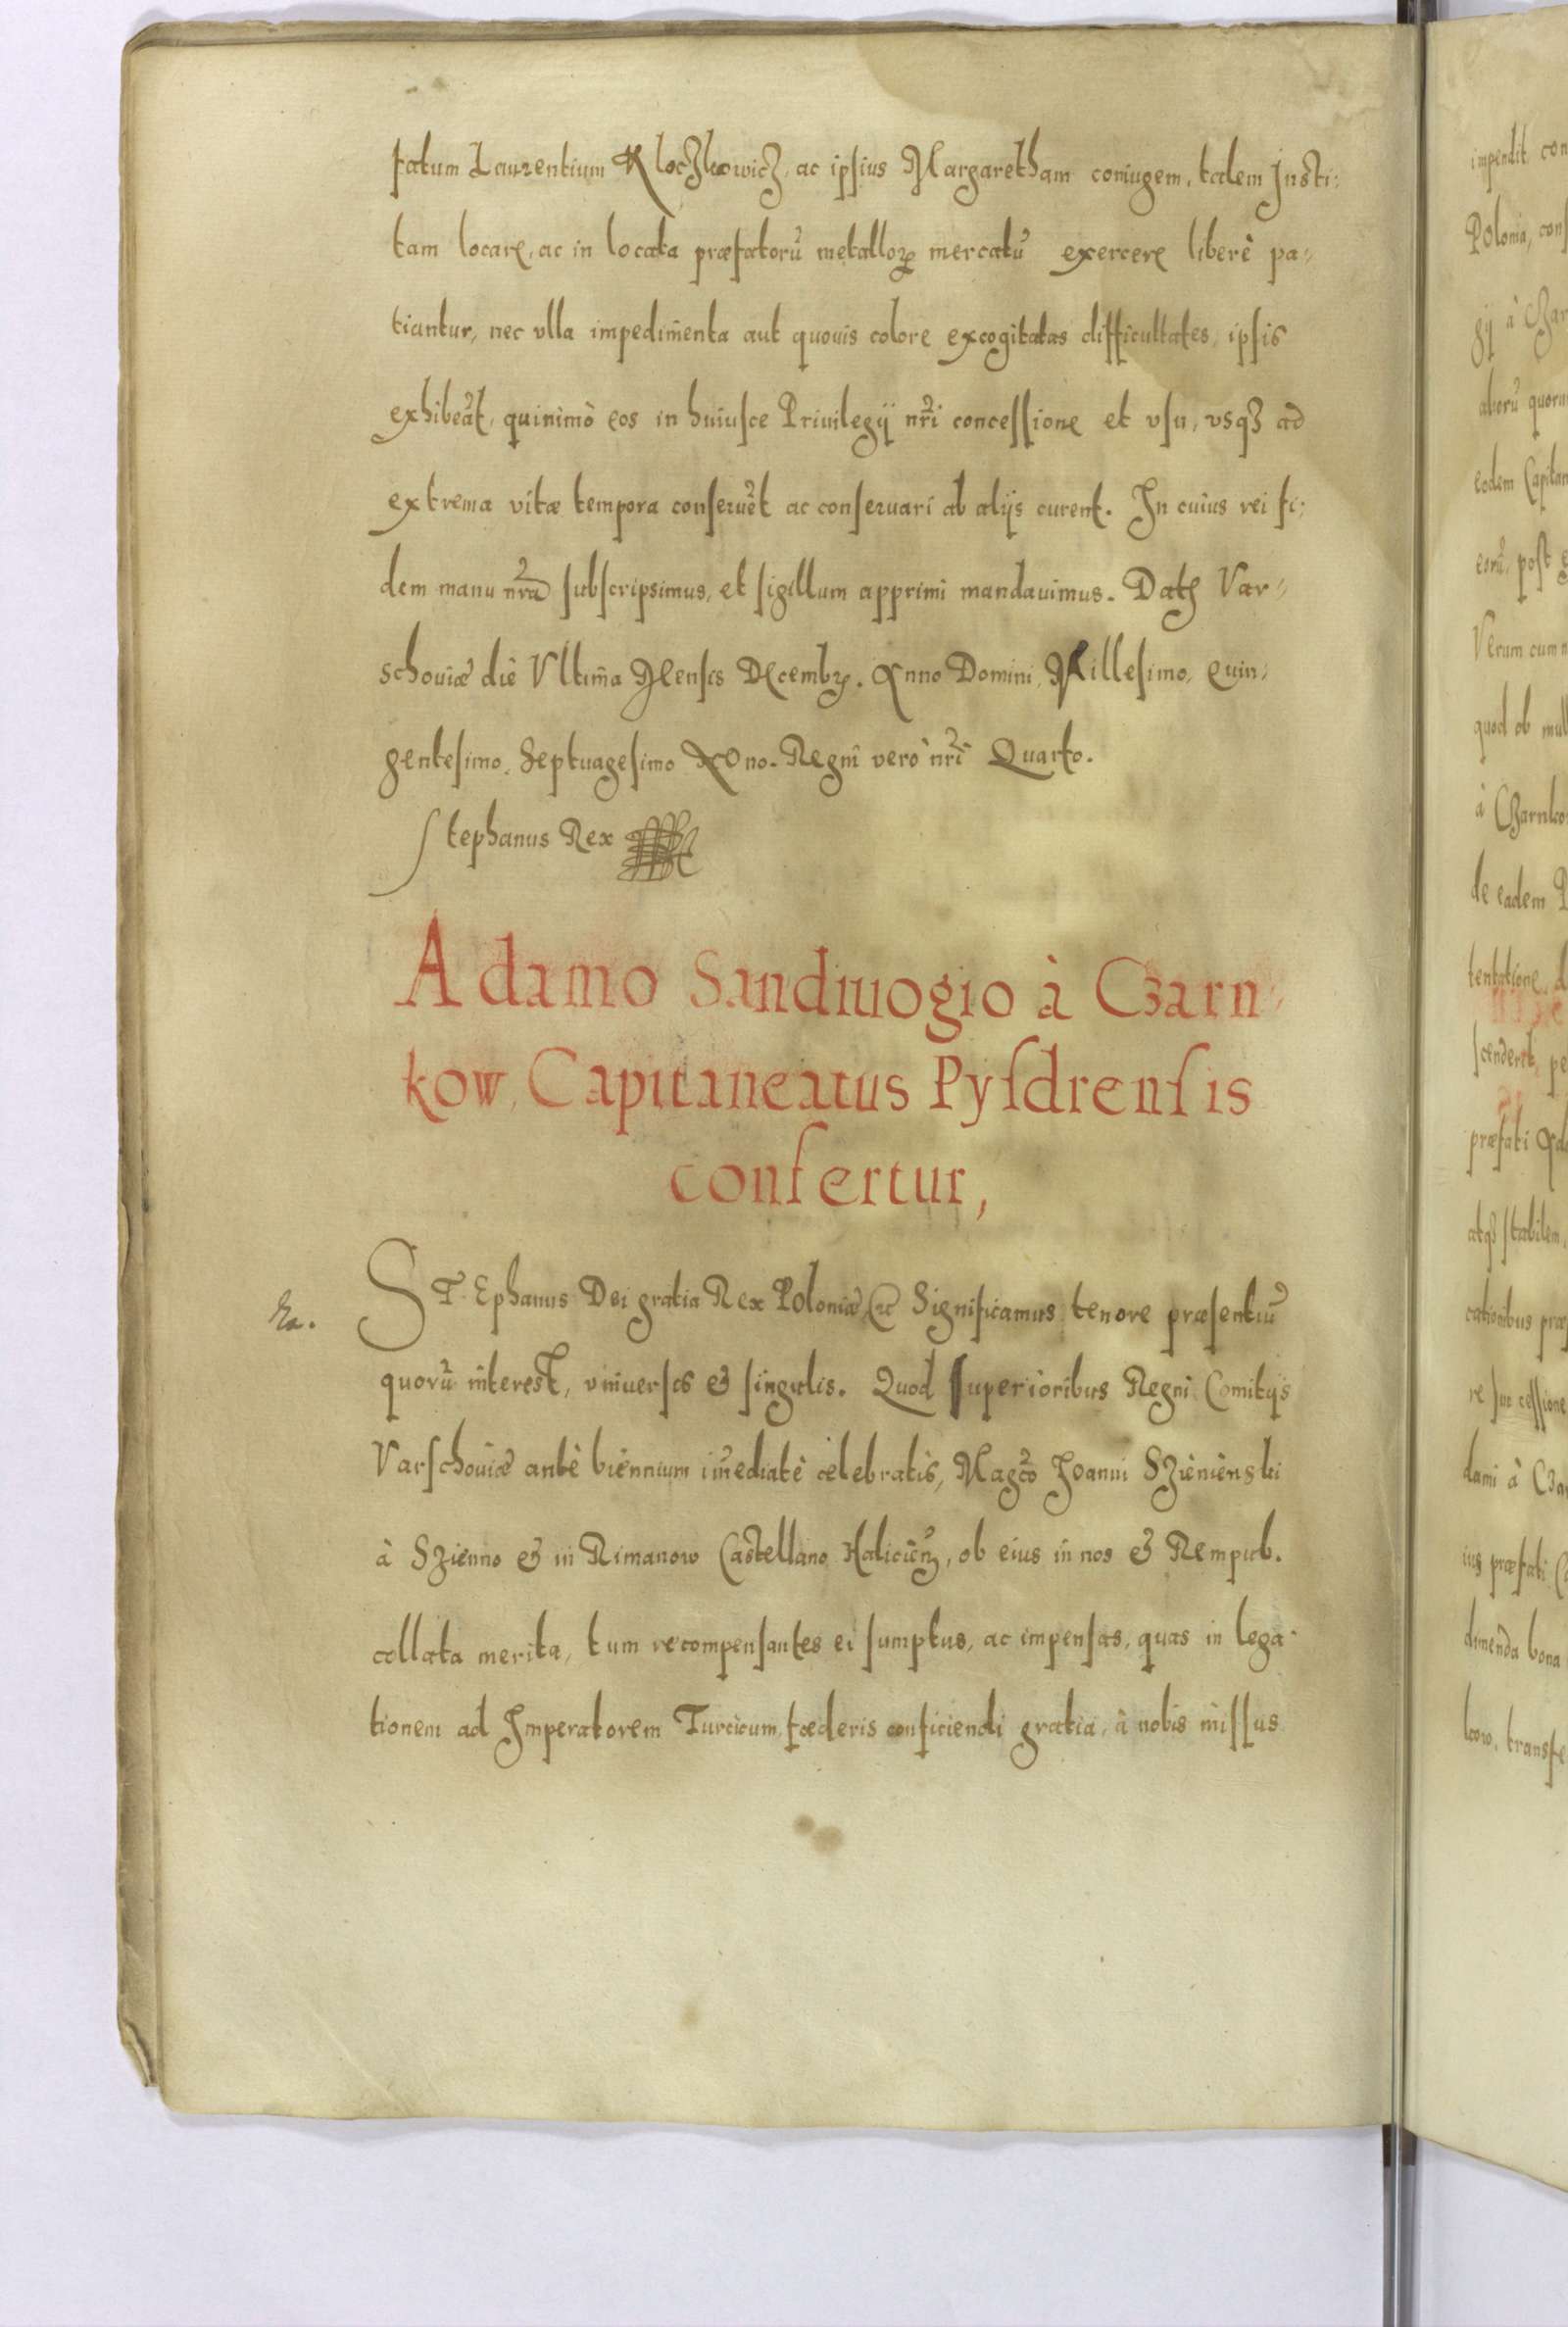 fatum Laurentium Kloczkowicz, ac ipsius Margaretham coniugem, talem Insti:
tam locare, ac in locata præfatorũ metalloꝝ mercatũ exercere liberè pa-
tiantur, nec vlla impedimenta aut quouis colore excogitatas difficultates, ipsis
exhibeãt, quinimò eos in huiusce Priuilegij nr̃i concessione et vsu, vsqꝫ ad
extrema vitæ tempora conseruẽt ac conseruari ab alijs curent. In cuius rei fi:
dem manu nr̃a subscripsimus, et sigillum apprimi mandauimus. Datꝭ Var-
schouiæ die Vltima Mensis Decembꝶ. Anno Domini, Millesimo, Quin-
gentesimo, Septuagesimo Nono. Regni vero nr̃i Quarto.
Stephanus Rex
Adamo Sandiuogio à Czarn
kow, Capitaneatus Pysdrensis
confertur,
STEphanus Dei gratia Rex Poloniæ, &c Significamus tenore præsentiũ
quorũ interest, vniuersis & singulis. Quod superioribus Regni Comitijs
Varschouiæ antè biennium im̃ediatè celebratis, Magc̃o Joanni Szienienski
à Szienno & in Rimanow Castellano Haliciẽn, ob eius in nos & Rempub.
collata merita, tum recompensantes ei sumptus, ac impensas, quas in lega-
tionem ad Imperatorem Turcicum, fœderis conficiendi gratia, à nobis missus
impendit, con
Polonia, con
gij à Czar
aborũ quoru
eodem Capitan
eorũ, post
Verum cum n
quod ob mul
à Czarnko
de eadem P
tentatione, d
scenderet, pe
præfati Ada
atqꝫ stabilem,
cationibus præ
re suo cessione
dami à Czar
ius præfati Ca
dimenda bona
kow, transfe